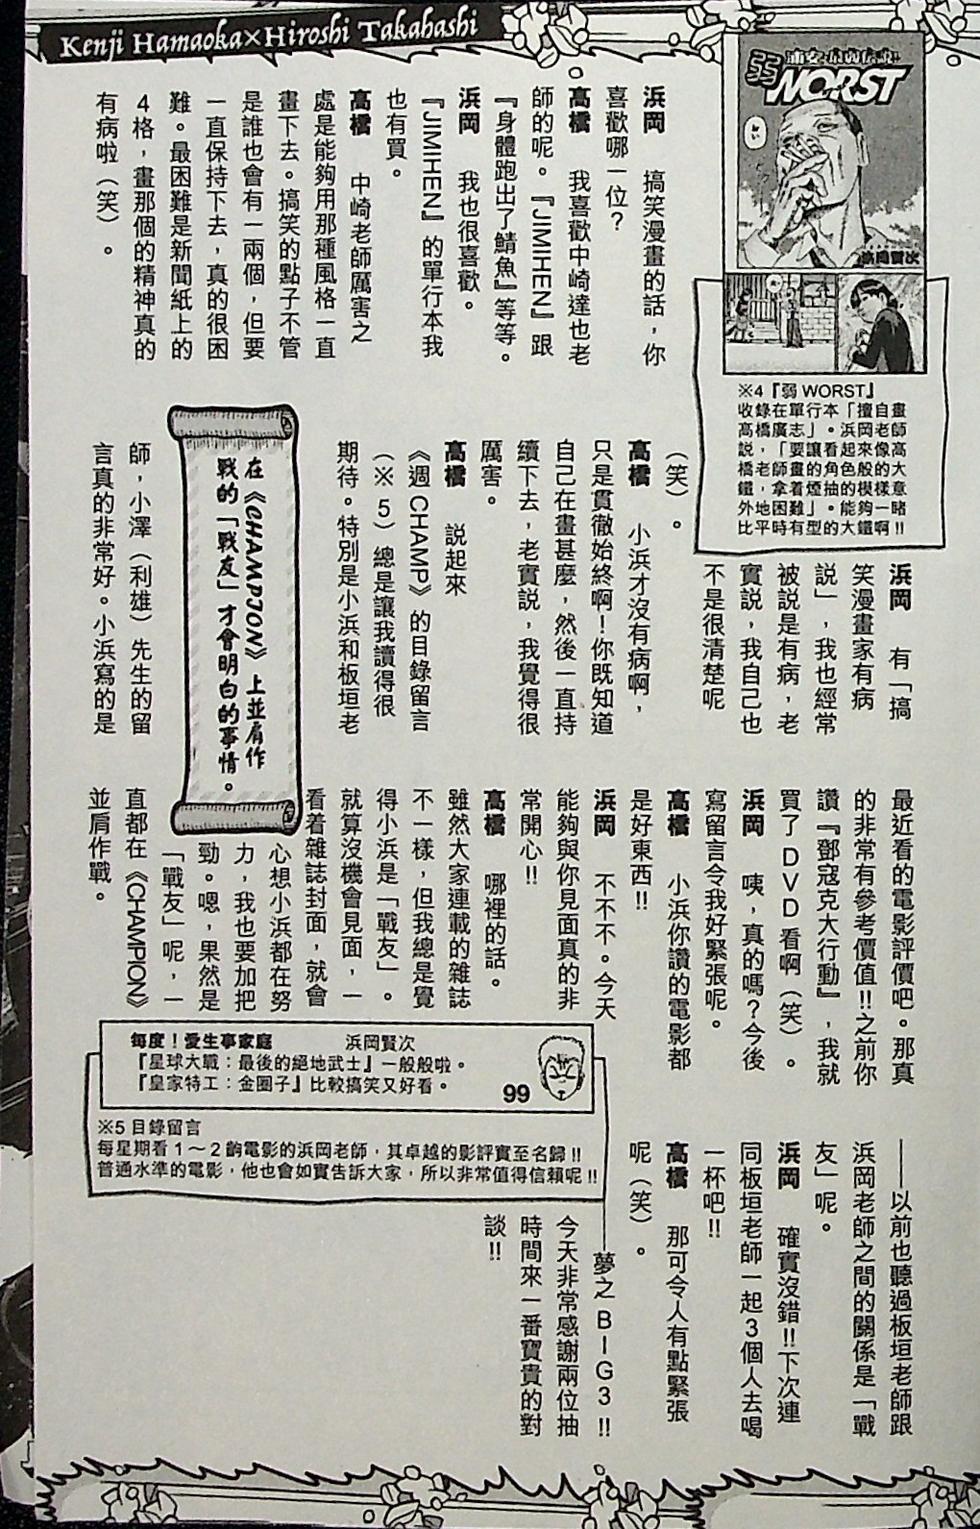 Kenji Hamaoka×Hiroshi Takahashi
弱
WORST
浜岡賢次
※4『弱 WORST』
收錄在單行本「擅自畫
高橋廣志」。浜岡老師
説，「要讓看起來像高
橋老師畫的角色般的大
鐵，拿着煙抽的模樣意
外地困難」。能夠一睹
比平時有型的大鐵啊!!
浜岡　搞笑漫畫的話，你
喜歡哪一位？
高橋　我喜歡中崎達也老
師的呢。『JIMIHEN』跟
『身體跑出了鯖魚』等等。
浜岡　我也很喜歡。
『JIMIHEN』的單行本我
也有買。
高橋　中崎老師厲害之
處是能夠用那種風格一直
畫下去。搞笑的點子不管
是誰也會有一兩個，但要
一直保持下去，真的很困
難。最困難是新聞紙上的
4格，畫那個的精神真的
有病啦（笑）。
浜岡　有「搞
笑漫畫家有病
説」，我也經常
被説是有病，老
實説，我自己也
不是很清楚呢
（笑）。
高橋　小浜才沒有病啊，
只是貫徹始終啊！你既知道
自己在畫甚麼，然後一直持
續下去，老實説，我覺得很
厲害。
高橋　説起來
《週 CHAMP》的目錄留言
（※5）總是讓我讀得很
期待。特別是小浜和板垣老
師，小澤（利雄）先生的留
言真的非常好。小浜寫的是
在《CHAMPION》上並肩作
戰的「戰友」才會明白的事情。
最近看的電影評價吧。那真
的非常有參考價值!!之前你
讚『鄧寇克大行動』，我就
買了DVD看啊（笑）。
浜岡　咦，真的嗎？今後
寫留言令我好緊張呢。
高橋　小浜你讚的電影都
是好東西!!
浜岡　不不不。今天
能夠與你見面真的非
常開心!!
高橋　哪裡的話。
雖然大家連載的雜誌
不一樣，但我總是覺
得小浜是「戰友」。
就算沒機會見面，一
看着雜誌封面，就會
心想小浜都在努
力，我也要加把
勁。嗯，果然是
「戰友」呢，一
直都在《CHAMPION》
並肩作戰。
每度！愛生事家庭　浜岡賢次
『星球大戰：最後的絕地武士』一般般啦。
『皇家特工：金圈子』比較搞笑又好看。
99
※5 目錄留言
每星期看1～2齣電影的浜岡老師，其卓越的影評實至名歸!!
普通水準的電影，他也會如實告訴大家，所以非常值得信賴呢!!
——以前也聽過板垣老師跟
浜岡老師之間的關係是「戰
友」呢。
浜岡　確實沒錯!!下次連
同板垣老師一起3個人去喝
一杯吧!!
高橋　那可令人有點緊張
呢（笑）。
——夢之BIG3!!
今天非常感謝兩位抽
時間來一番寶貴的對
談!!